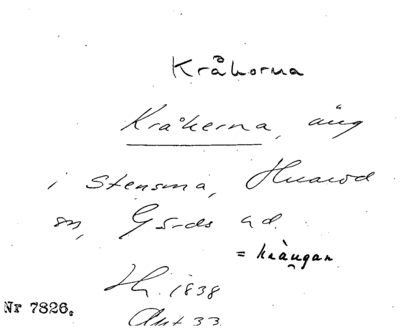 Kråkorna
Kråkerna, äng
i Stensma, Huarod
sn, Gärds hd.
= krångan
Hh. 1838
Akt 33
Nr 7826.